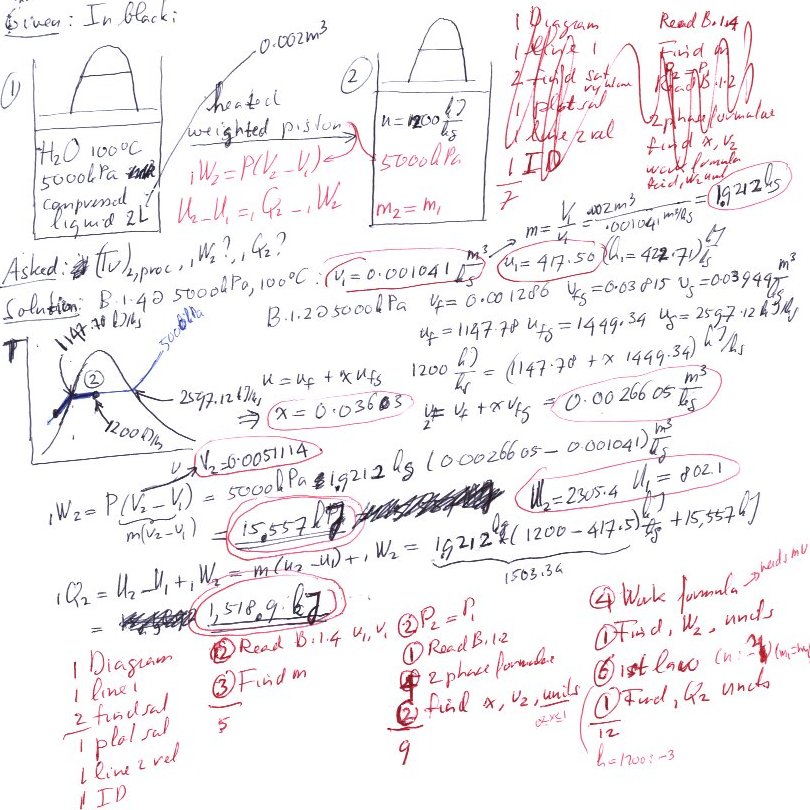 Given: In black:
0.002m³
①
②
H₂O 100°C
5000kPa
compressed
liquid 2L
heated
weighted piston
₁W₂ = P(V₂ – V₁)
U₂–U₁ = ₁Q₂ – ₁W₂
u=1200 kJ/kg
5000kPa
m₂ = m₁
1 Diagram
1 line 1
2 find sat
1 plot sal
1 line 2 rel
1 ID
7
Read B.1.4
Find m
P₂ = P₁
Read B.1.2
2 phase formulae
find x, v₂
work formula
m = V₁/v₁ = .002m³/.001041 m³/kg = 1.9212 kg
Asked: (Tv)₂,proc, ₁W₂?, ₁Q₂?
Solution: B.1.4 @ 5000kPa, 100°C: v₁ = 0.001041 m³/kg u₁ = 417.50 (h₁ = 422.71) kJ/kg
B.1.2 @ 5000kPa vf = 0.001286 vfg = 0.03815 vg = 0.03944 m³/kg
uf = 1147.78 ufg = 1449.34 ug = 2597.12 kJ/kg
T
1147.78 kJ/kg
5000kPa
②
2597.12 kJ/kg
1200 kJ/kg
v
u = uf + x ufg 1200 kJ/kg = (1147.78 + x 1449.34) kJ/kg
⇒ x = 0.03603 v₂ = vf + x vfg = 0.0026605 m³/kg
V₂ = 0.0051114
₁W₂ = P(V₂ – V₁) = 5000kPa 1.9212 kg (0.0026605 – 0.001041) m³/kg
m(v₂–v₁)
= 15.557 kJ
U₂ = 2305.4 U₁ = 802.1
₁Q₂ = U₂ – U₁ + ₁W₂ = m(u₂ – u₁) + ₁W₂ = 1.9212 kg (1200 – 417.5) kJ/kg + 15,557 kJ
1503.39
= 1,518.9 kJ
1 Diagram
1 line 1
2 find sal
1 plot sal
1 line 2 rel
1 ID
② Read B.1.4 u₁, v₁
③ Find m
5
② P₂ = P₁
① Read B.1.2
④ 2 phase formulae
② find x, v₂, units
0<x<1
9
④ Work formula → needs m V
① Find ₁W₂ units
⑥ 1st law (m₁=m₂)
① Find ₁Q₂ units
12
h=1200: –3